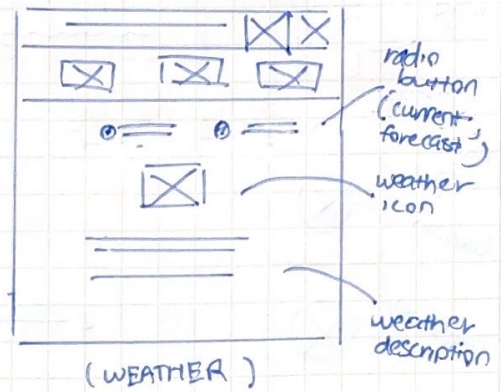 radio
button
(current,
forecast)
weather
icon
weather
description
(WEATHER)